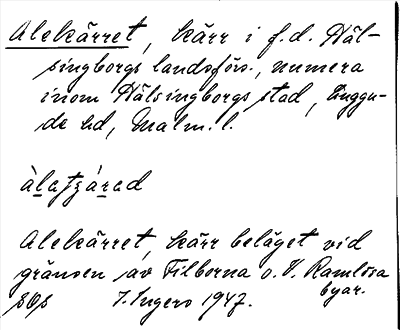 Alekärret, kärr i f.d. Häl-
singborgs landsförs., numera
inom Hälsingborgs stad, Luggu-
de hd, Malm. l.
Alekärret, kärr beläget vid
gränsen av Filborna o. V. Ramlösa
byar.
I. Ingers 1947.